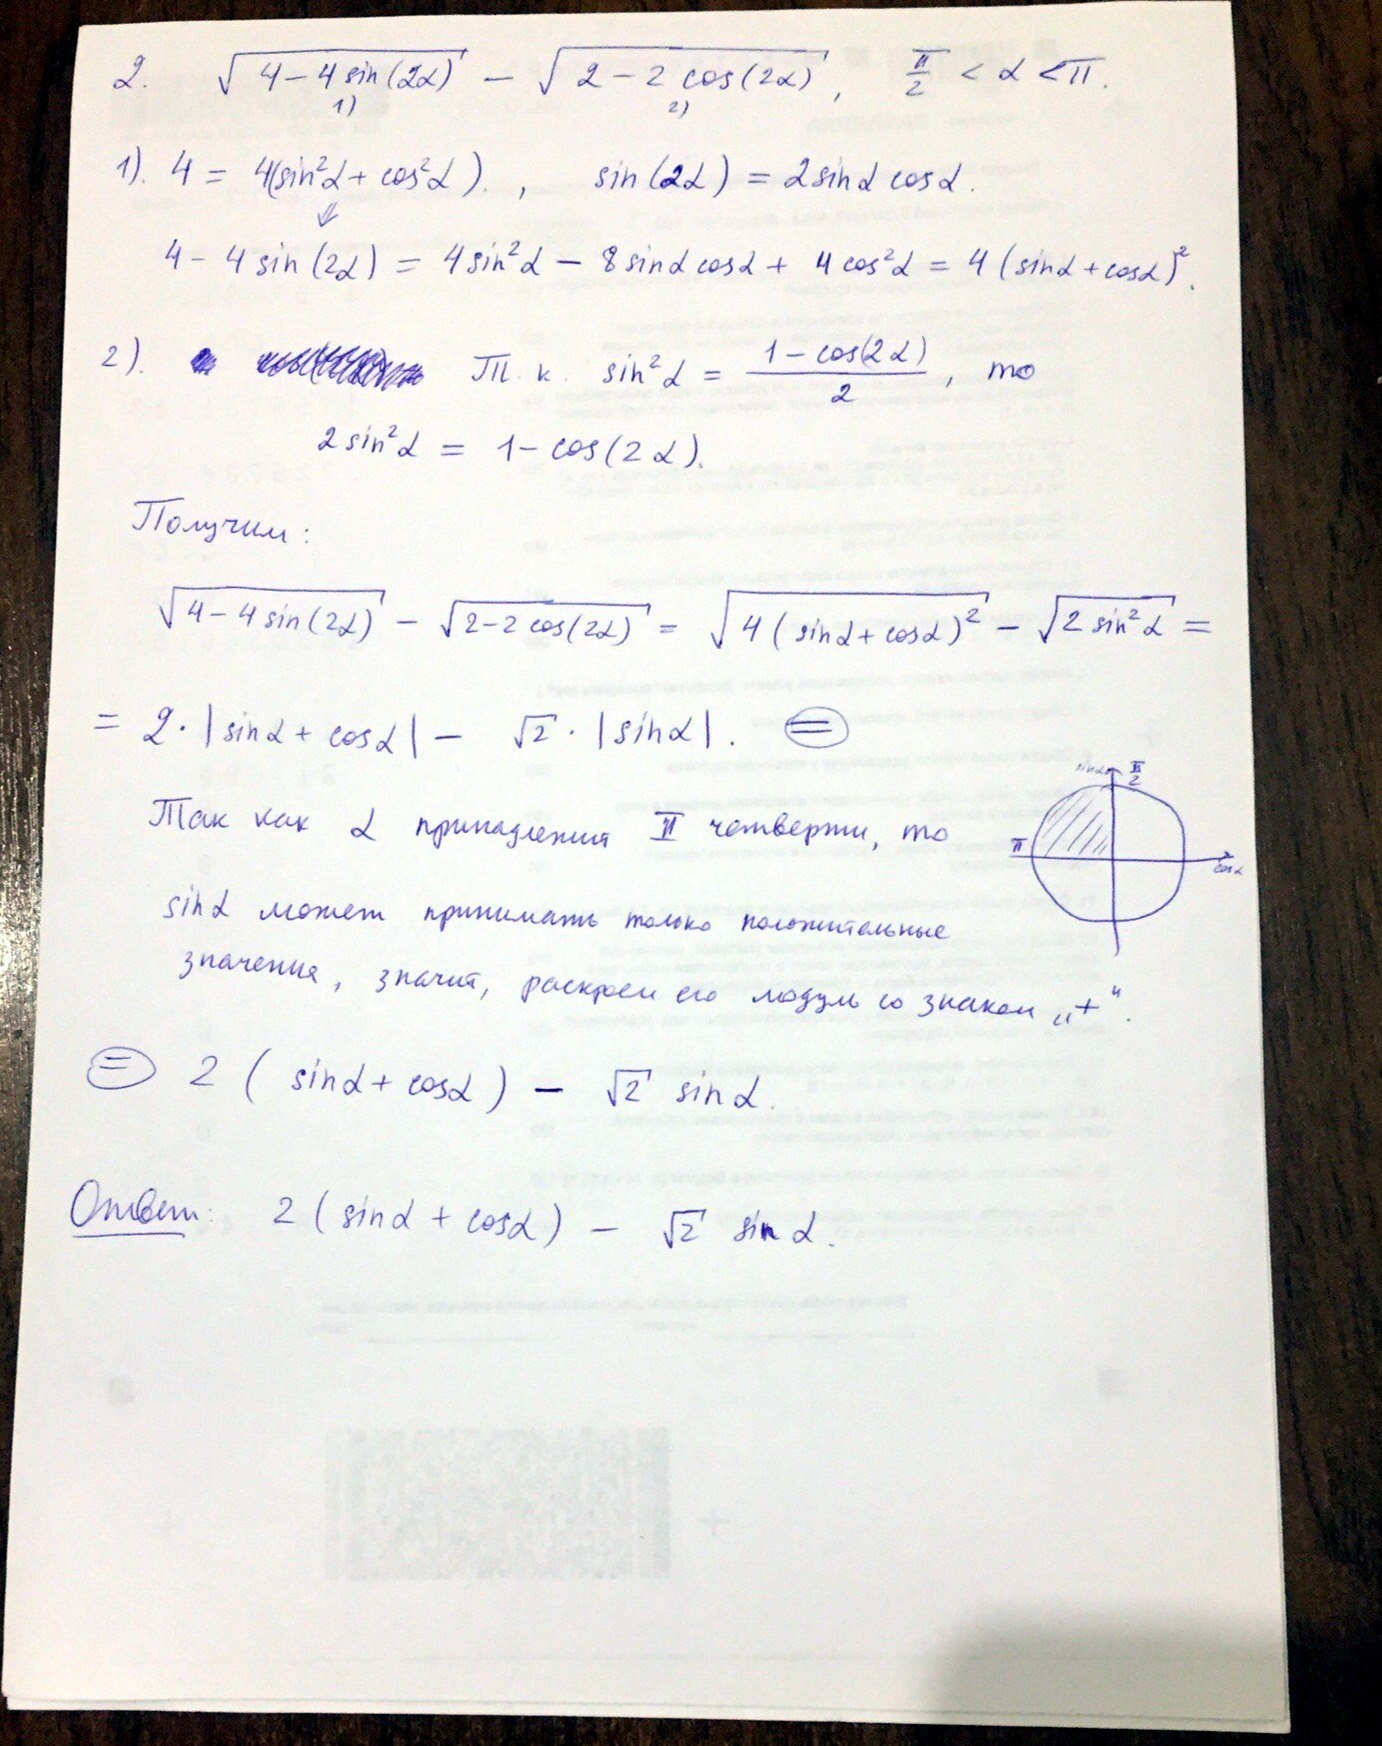 2. √(4 − 4 sin(2α)) − √(2 − 2 cos(2α)), π/2 < α < π.
1) 2)
1). 4 = 4(sin²α + cos²α)., sin(2α) = 2sinα cosα.
⇓
4 − 4 sin(2α) = 4sin²α − 8 sinα cosα + 4 cos²α = 4 (sinα + cosα)².
2). Т. к. sin²α = (1 − cos(2α))/2, то
2 sin²α = 1 − cos(2α).
Получим:
√(4 − 4 sin(2α)) − √(2 − 2 cos(2α)) = √(4 (sinα + cosα)²) − √(2 sin²α) =
= 2 · |sinα + cosα| − √2 · |sinα|. =
sinα π/2
π cosα
Так как α принадлежит II четверти, то
sinα может принимать только положительные
значения, значит, раскроем его модуль со знаком „+“.
= 2 ( sinα + cosα ) − √2 sinα.
Ответ: 2 (sinα + cosα) − √2 sinα.